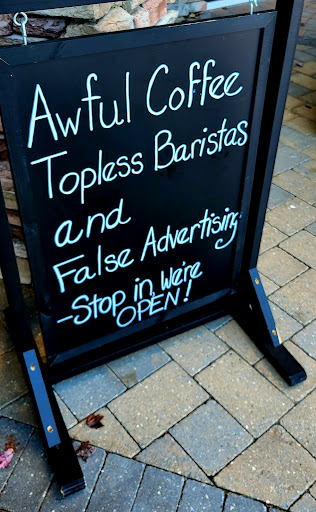 Awful Coffee
Topless Baristas
and
False Advertising
-Stop in, We're
OPEN!